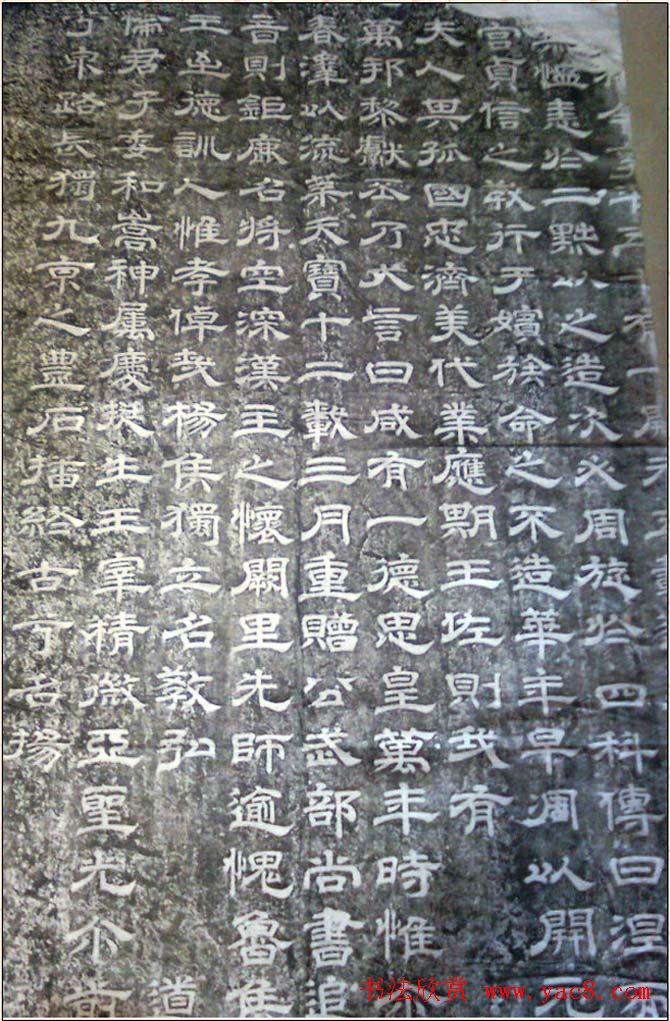 無慍恚於二黜以之造次必周旋於四科傳曰涅
宮貞信之教行于嬪族命之不造華年早凋以開元
夫人畀孤國忠濟美代業應期王佐則我有
萬邦黎獻丕乃大言曰咸有一德思皇萬年時惟
春澤以流葉天寶十二載三月重贈公武部尚書追
音則鉅鹿名將空深漢主之懷闕里先師逾愧魯侯
德訓人惟孝倬哉楊侯獨立名教弘道
儒君子委和嵩神属慶挺生王宰精微亞聖光尒
路長獨九京之豊石播終古兮名揚
书法欣赏 www.yac8.com